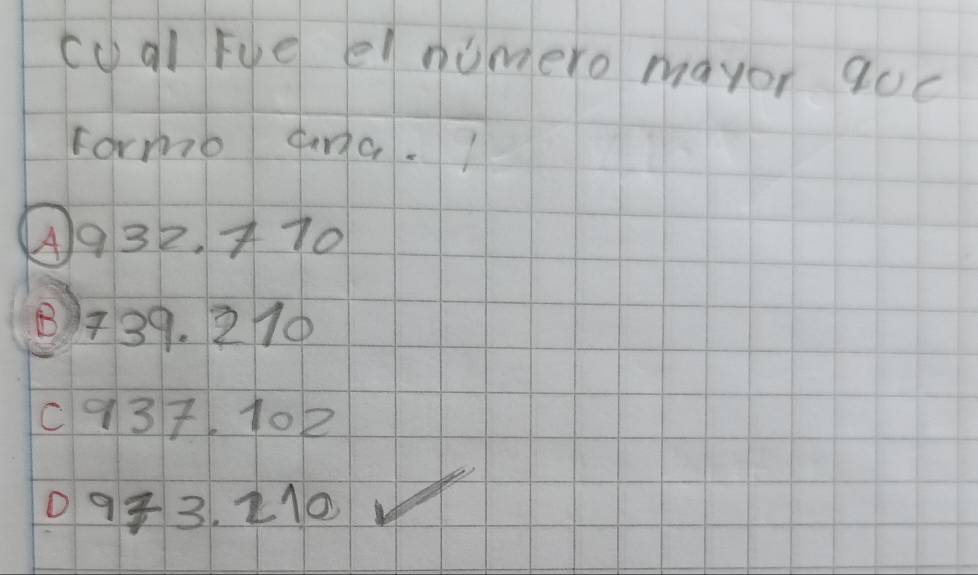 cual fue el número mayor que
formo ana. 1
A 932.710
B 739.210
C 937.102
D 973.210 ✓